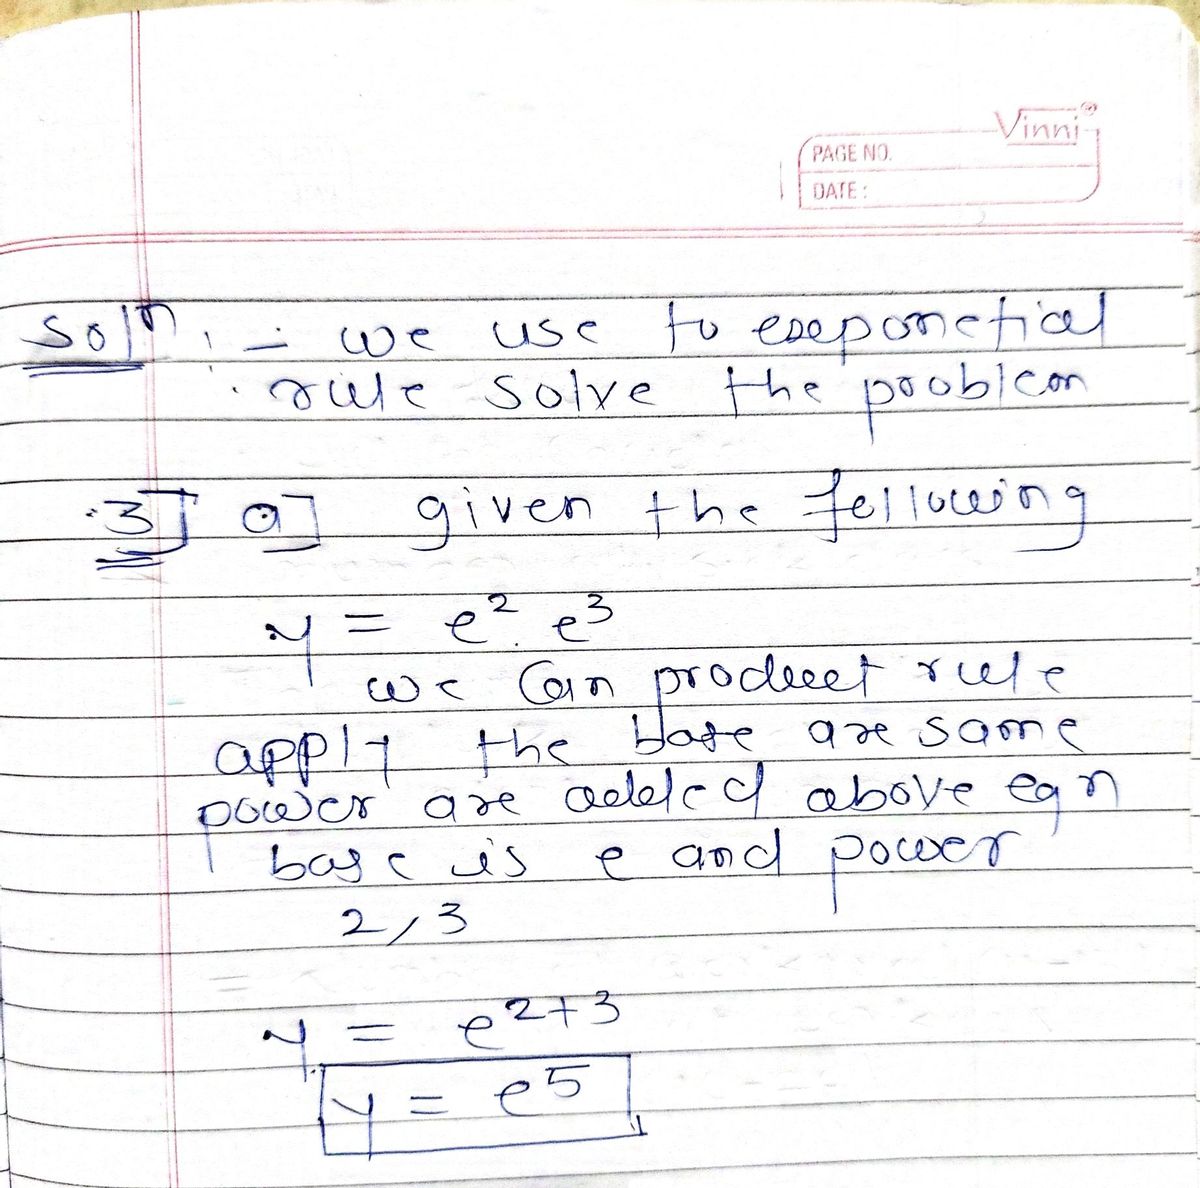 Vinni
PAGE NO.
DATE:
Solⁿ :- we use to exeponetial
rule solve the problem
3] a] given the following
y = e² . e³
we can product rule
apply the base are same
power are added above eqn
base is e and power
2,3
y = e²⁺³
y = e⁵